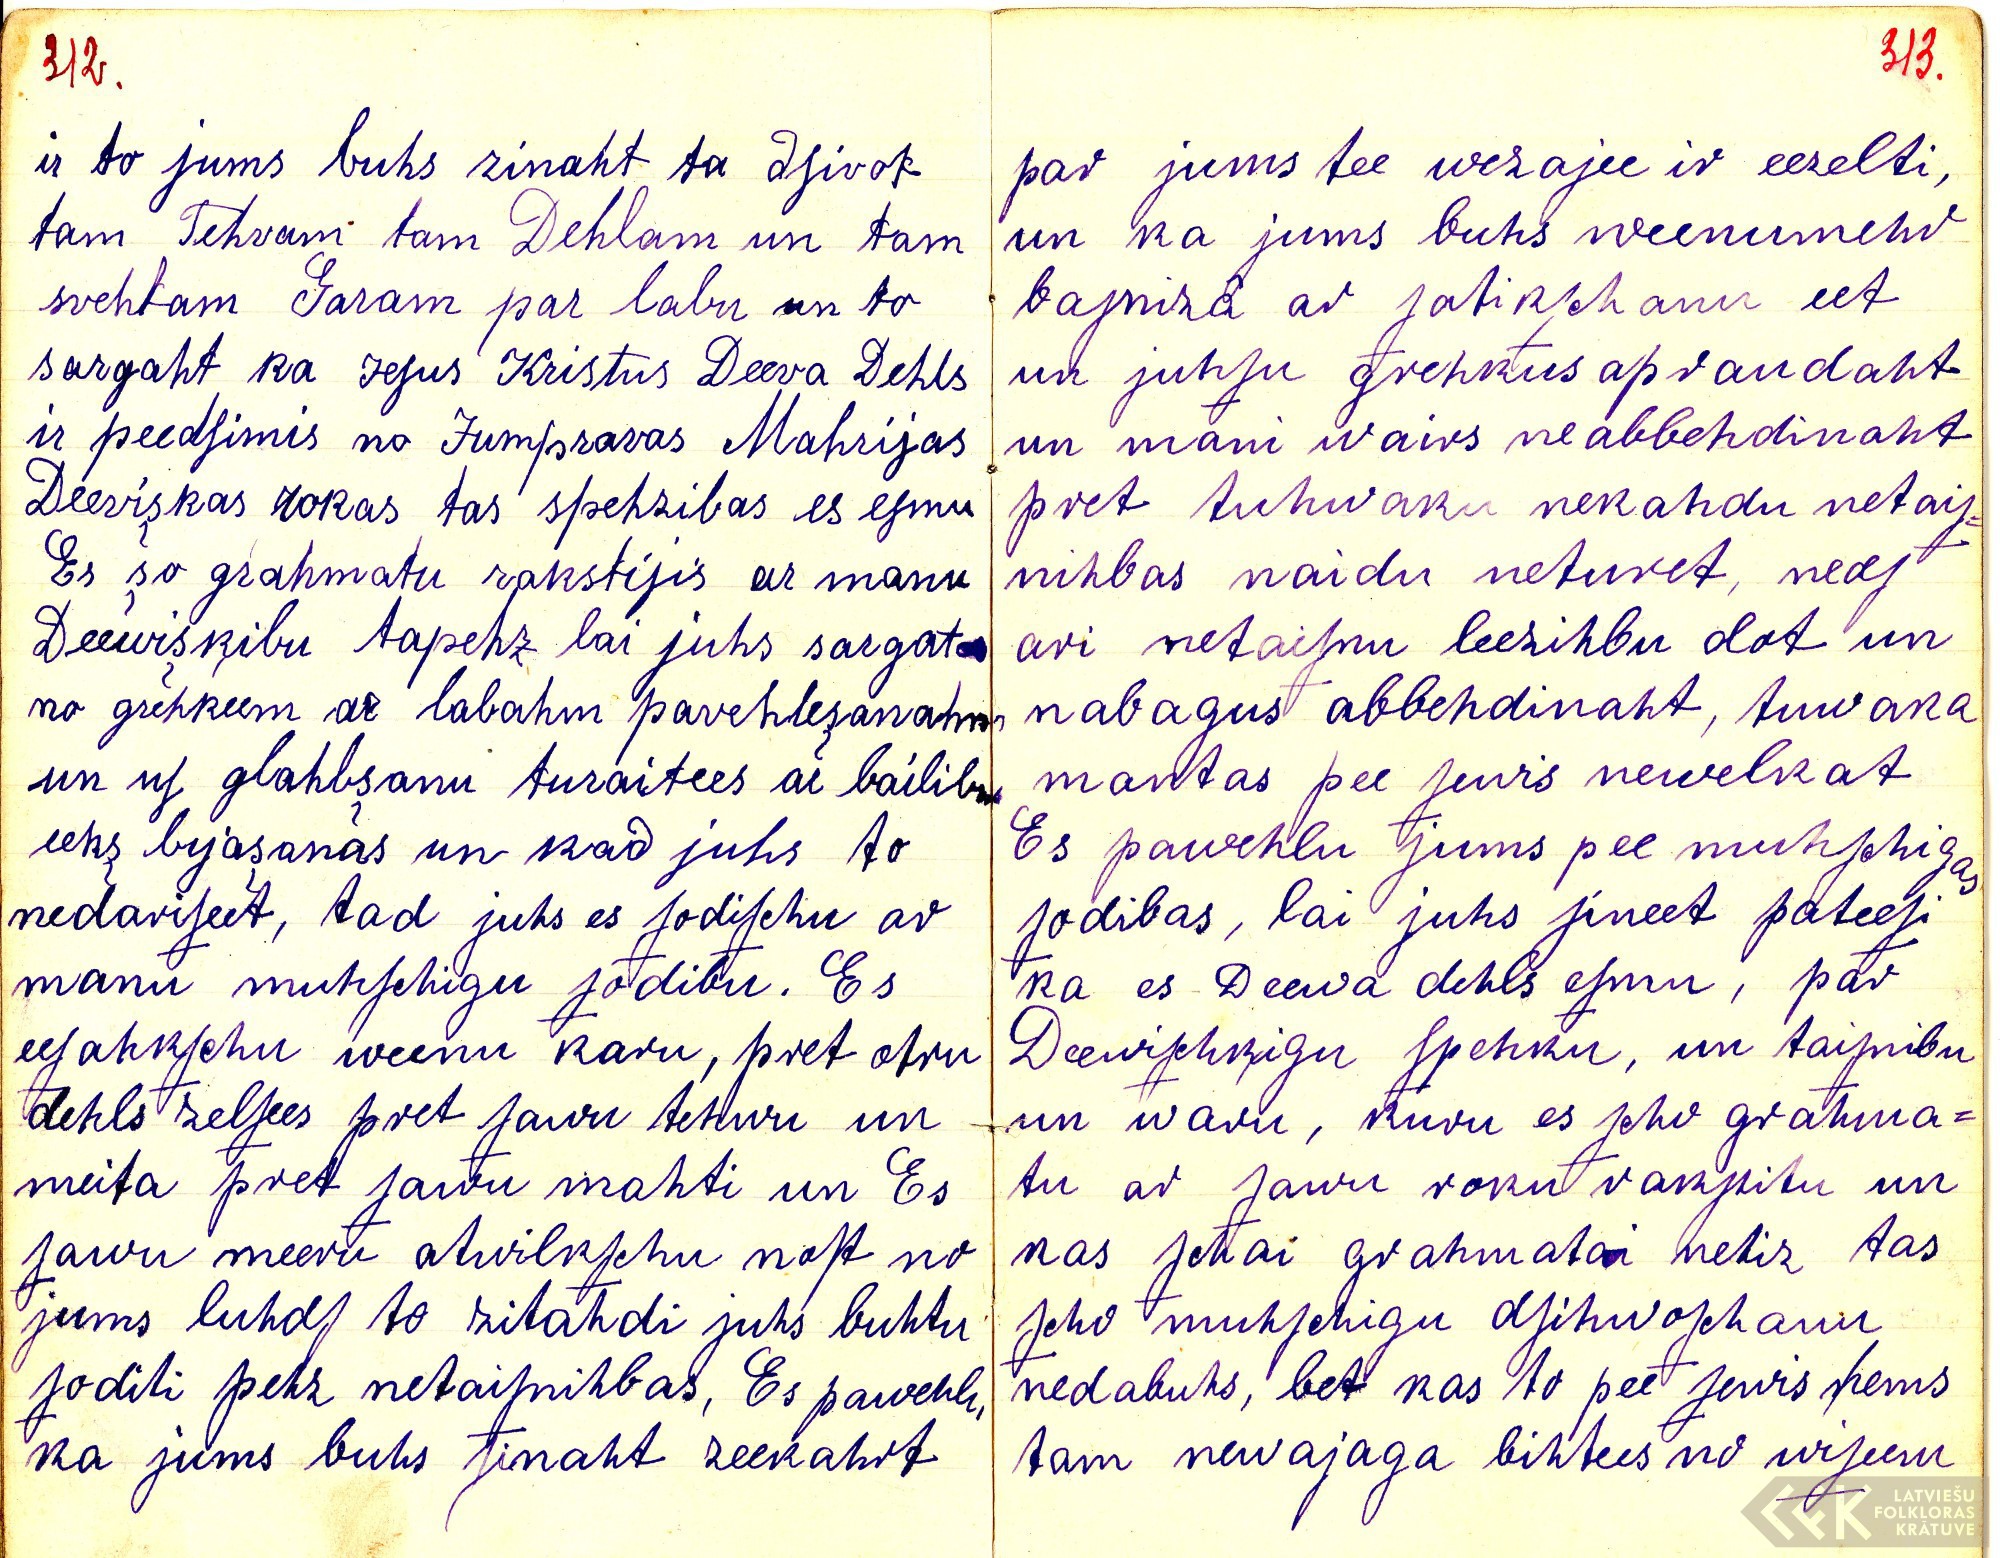 312.
ir to jums buhs zinaht ta dſivot
tam Tehvam tam Dehlam un tam
svehtam Garam par labu un to
sargaht ka Jeſus Kristus Deeva Dehls
ir peedſimis no Jumpravas Mahrijas
Deevişkas rokas tas spehzibas es eſmu
Es şo grahmatu rakstijis ar manu
Deewişķibu tapehz lai juhs sargat
no grehkeem ar labahm pavehleşanahm
un uſ glahbşanu turaitees ar bailibu
eekş bijaşanas un kad juhs to
nedariſeet, tad juhs es ſodiſchu ar
manu muhſchigu ſodibu. Es
eeſahkſchu weenu karu, pret otru
dehls zelſees pret ſawu tehwu un
meita pret ſawu mahti un Es
ſawu meeru atwilkſchu noſt no
jums luhdſ to zitahdi juhs buhtu
ſoditi pehz netaiſnihbas, Es pawehlu,
ka jums buhs ſinaht zeekahrt
313.
par jums tee wezajee ir eezelti,
un ka jums buhs weenumehr
baſnizâ ar ſatikſchanu eet
un juhſu grehkus apraudaht
un mani wairs neabbehdinaht
pret tuhwaku nekahdu netaiſ=
nihbas naidu neturet, nedſ
ari netaiſnu leezihbu dot un
nabagus abbehdinaht, tuwaka
mantas pee ſewis newelkat
Es pawehlu jums pee muhſchigas
ſodibas, lai juhs ſineet pateeſi
ka es Deewa dehls eſmu, par
Deewiſchkigu ſpehku, un taiſnibu
un waru, kuru es ſcho grahma=
tu ar ſawu roku rakſtitu un
kas ſchai grahmatai netiz tas
ſcho muhſchigu dſihwoſchanu
nedabuhs, bet kas to pee ſewis ņems
tam newajaga bihtees no wiſeem
LATVIEŠU
FOLKLORAS
KRĀTUVE